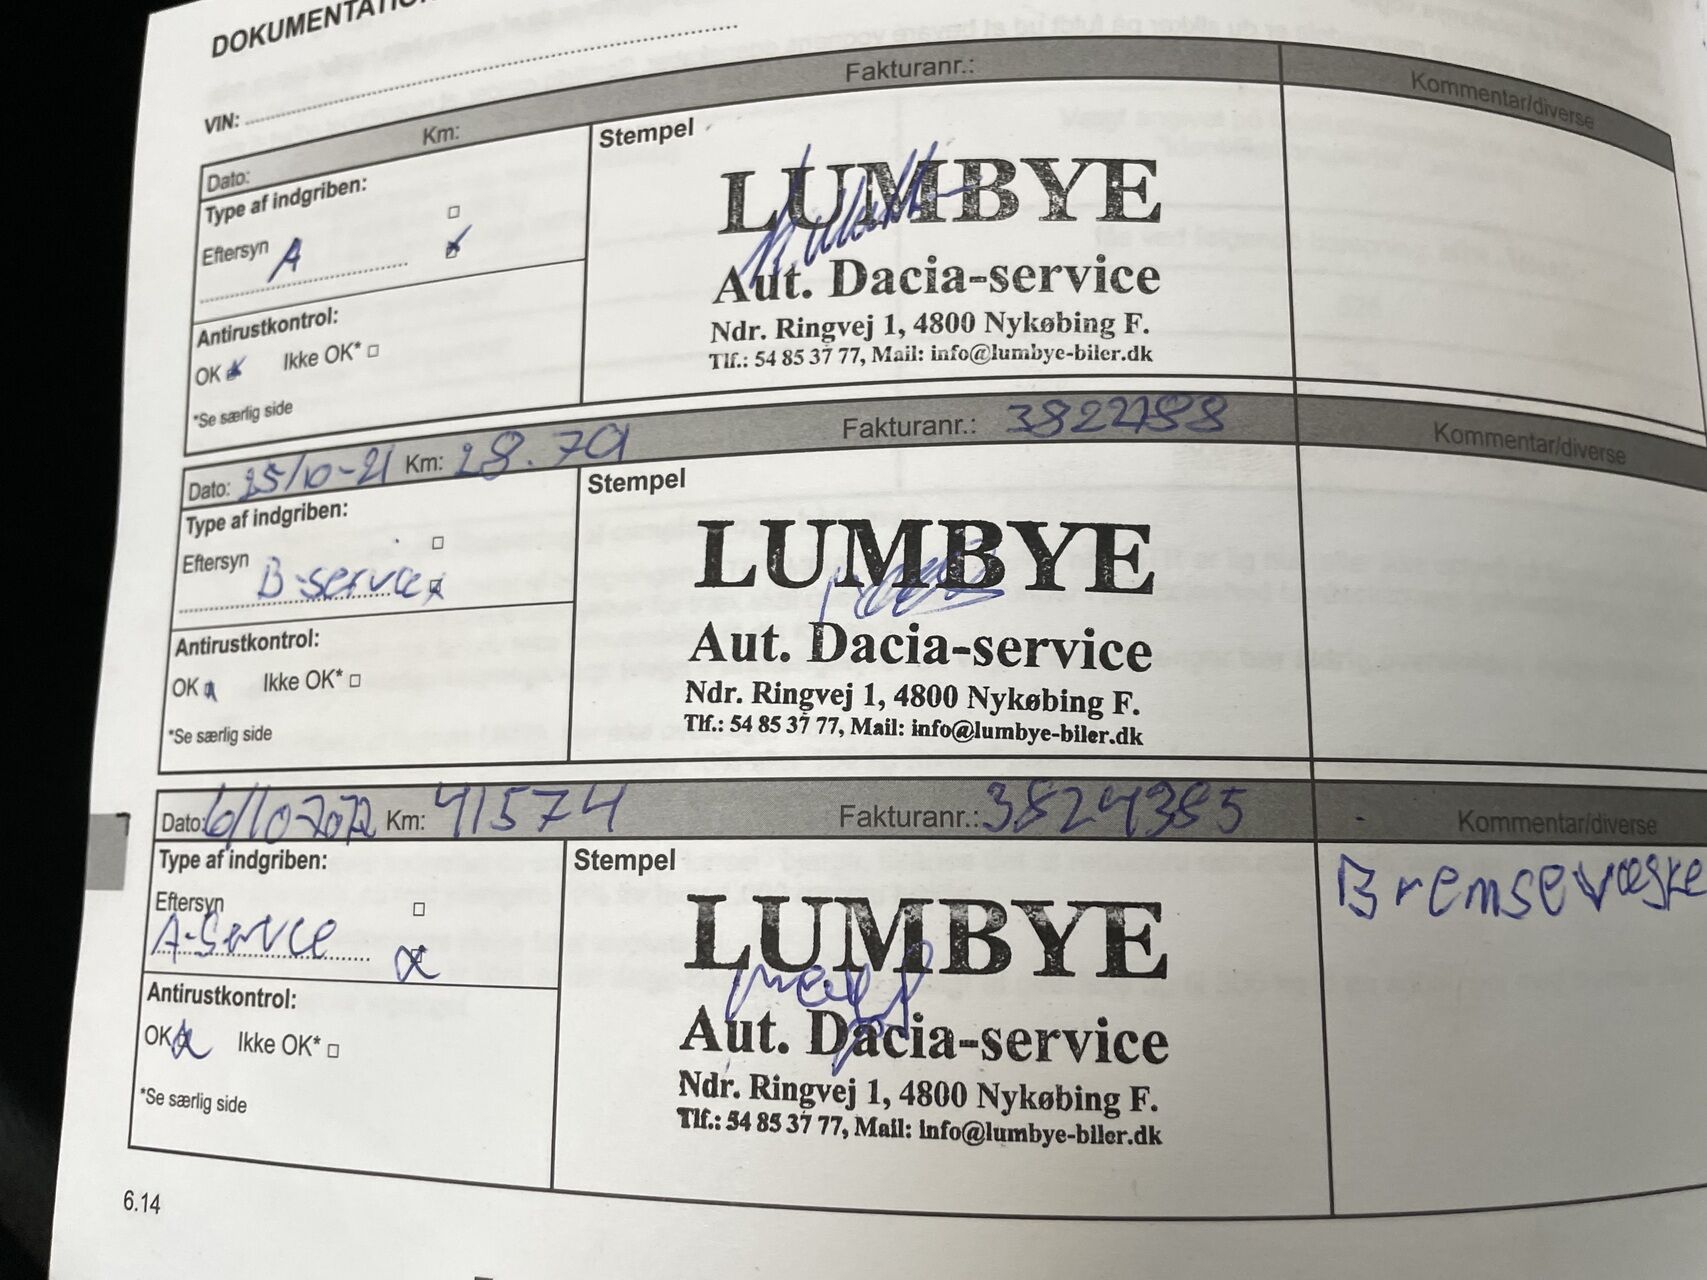 DOKUMENTATION
VIN:
Dato: Km: Fakturanr.: Kommentar/diverse
Type af indgriben:
Eftersyn A
Antirustkontrol:
OK Ikke OK*
*Se særlig side
Stempel
LUMBYE
Aut. Dacia-service
Ndr. Ringvej 1, 4800 Nykøbing F.
Tlf.: 54 85 37 77, Mail: info@lumbye-biler.dk
Dato: 25/10-21 Km: Fakturanr.: Kommentar/diverse
Type af indgriben:
Eftersyn B-service
Antirustkontrol:
OK Ikke OK*
*Se særlig side
Stempel
LUMBYE
Aut. Dacia-service
Ndr. Ringvej 1, 4800 Nykøbing F.
Tlf.: 54 85 37 77, Mail: info@lumbye-biler.dk
Dato: 6/10-2022 Km: 41574 Fakturanr.: 3824385 Kommentar/diverse
Type af indgriben:
Eftersyn
A-Service
Antirustkontrol:
OK Ikke OK*
*Se særlig side
Stempel
LUMBYE
Aut. Dacia-service
Ndr. Ringvej 1, 4800 Nykøbing F.
Tlf.: 54 85 37 77, Mail: info@lumbye-biler.dk
Bremsevæske
6.14